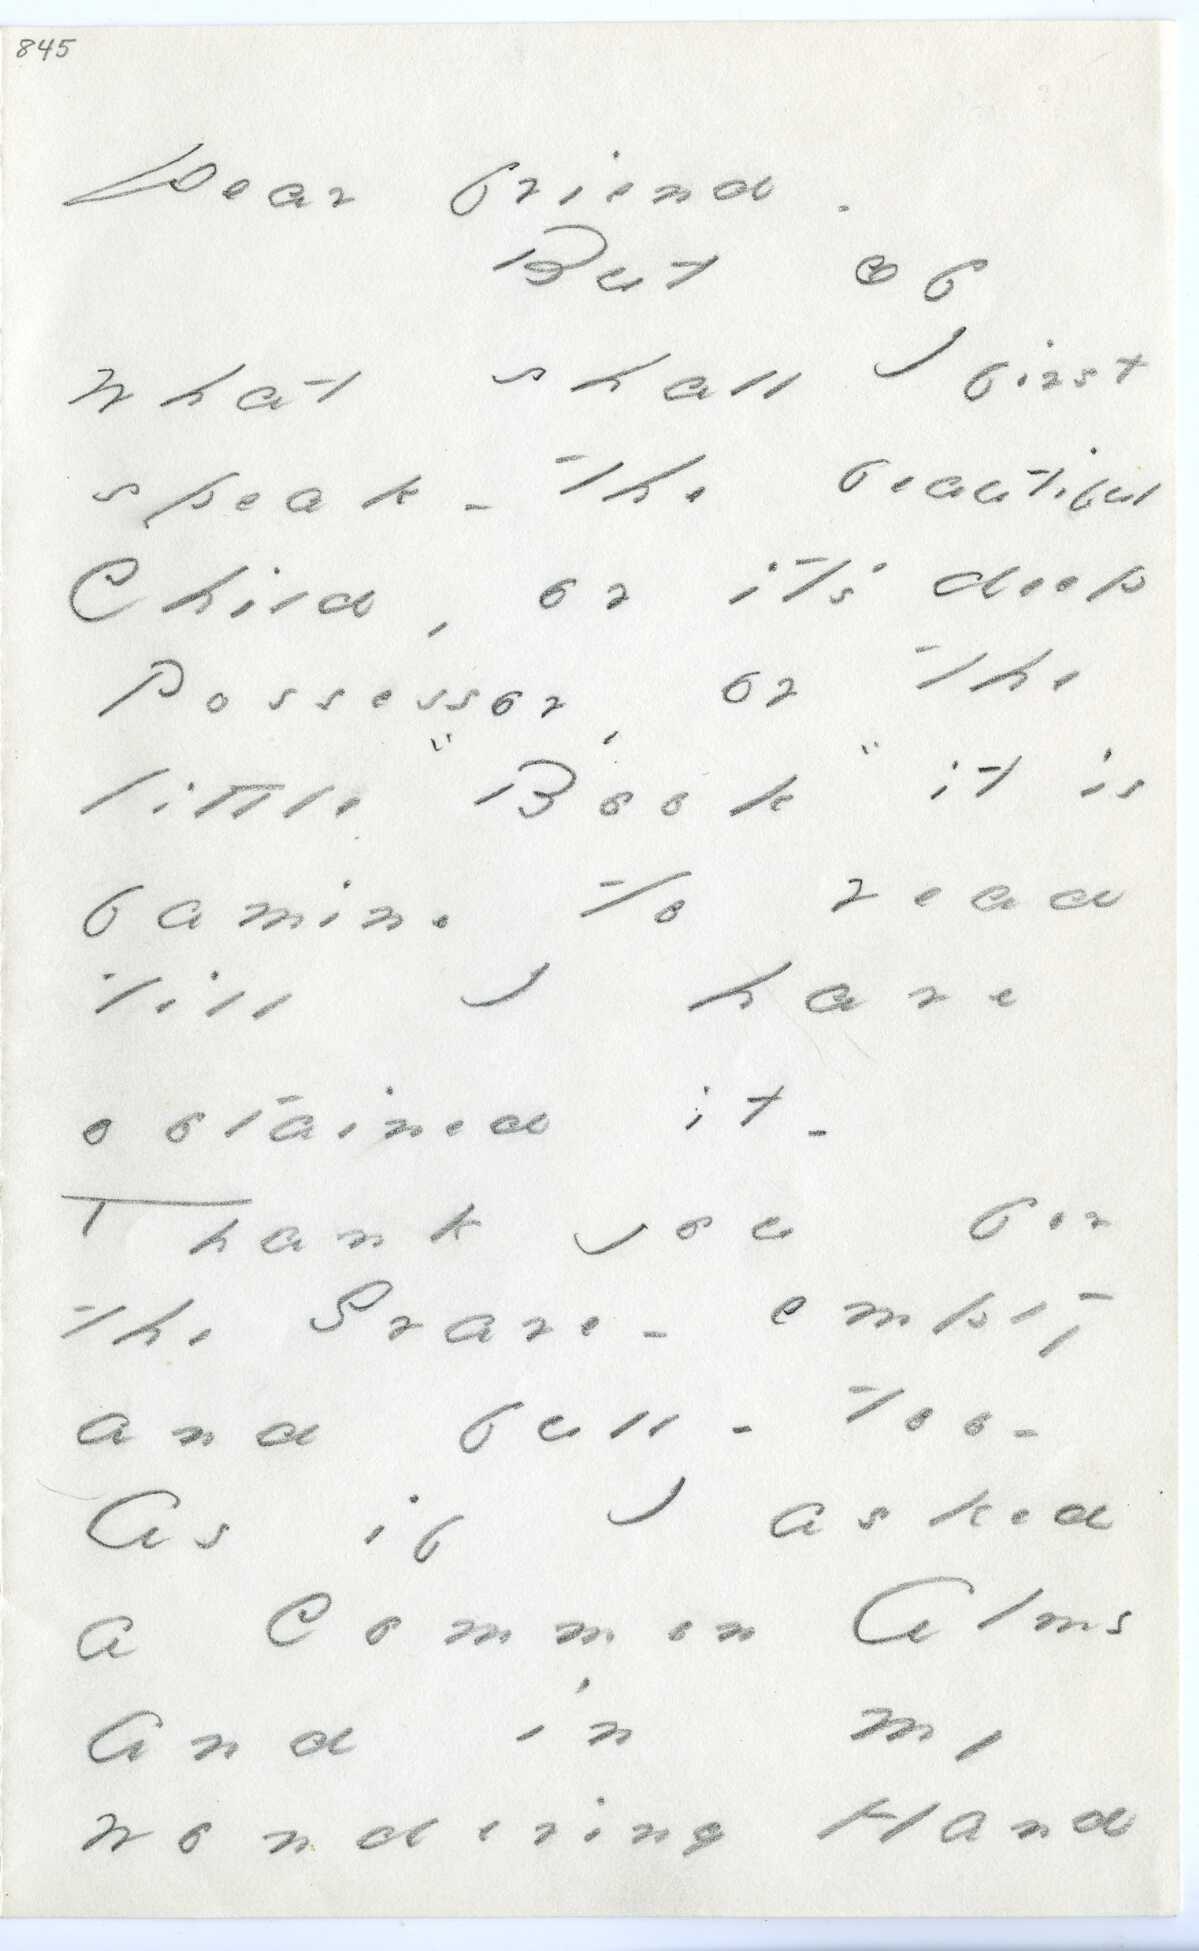 845
Dear friend.
But of
what shall I first
speak - the beautiful
Child, or it's deep
Possessor, or the
little "Book" it is
famine to read
till I have
obtained it -
Thank you for
the Grave - empty
and full - too -
As if I asked
a Common Alms
And in my
wondering Hand